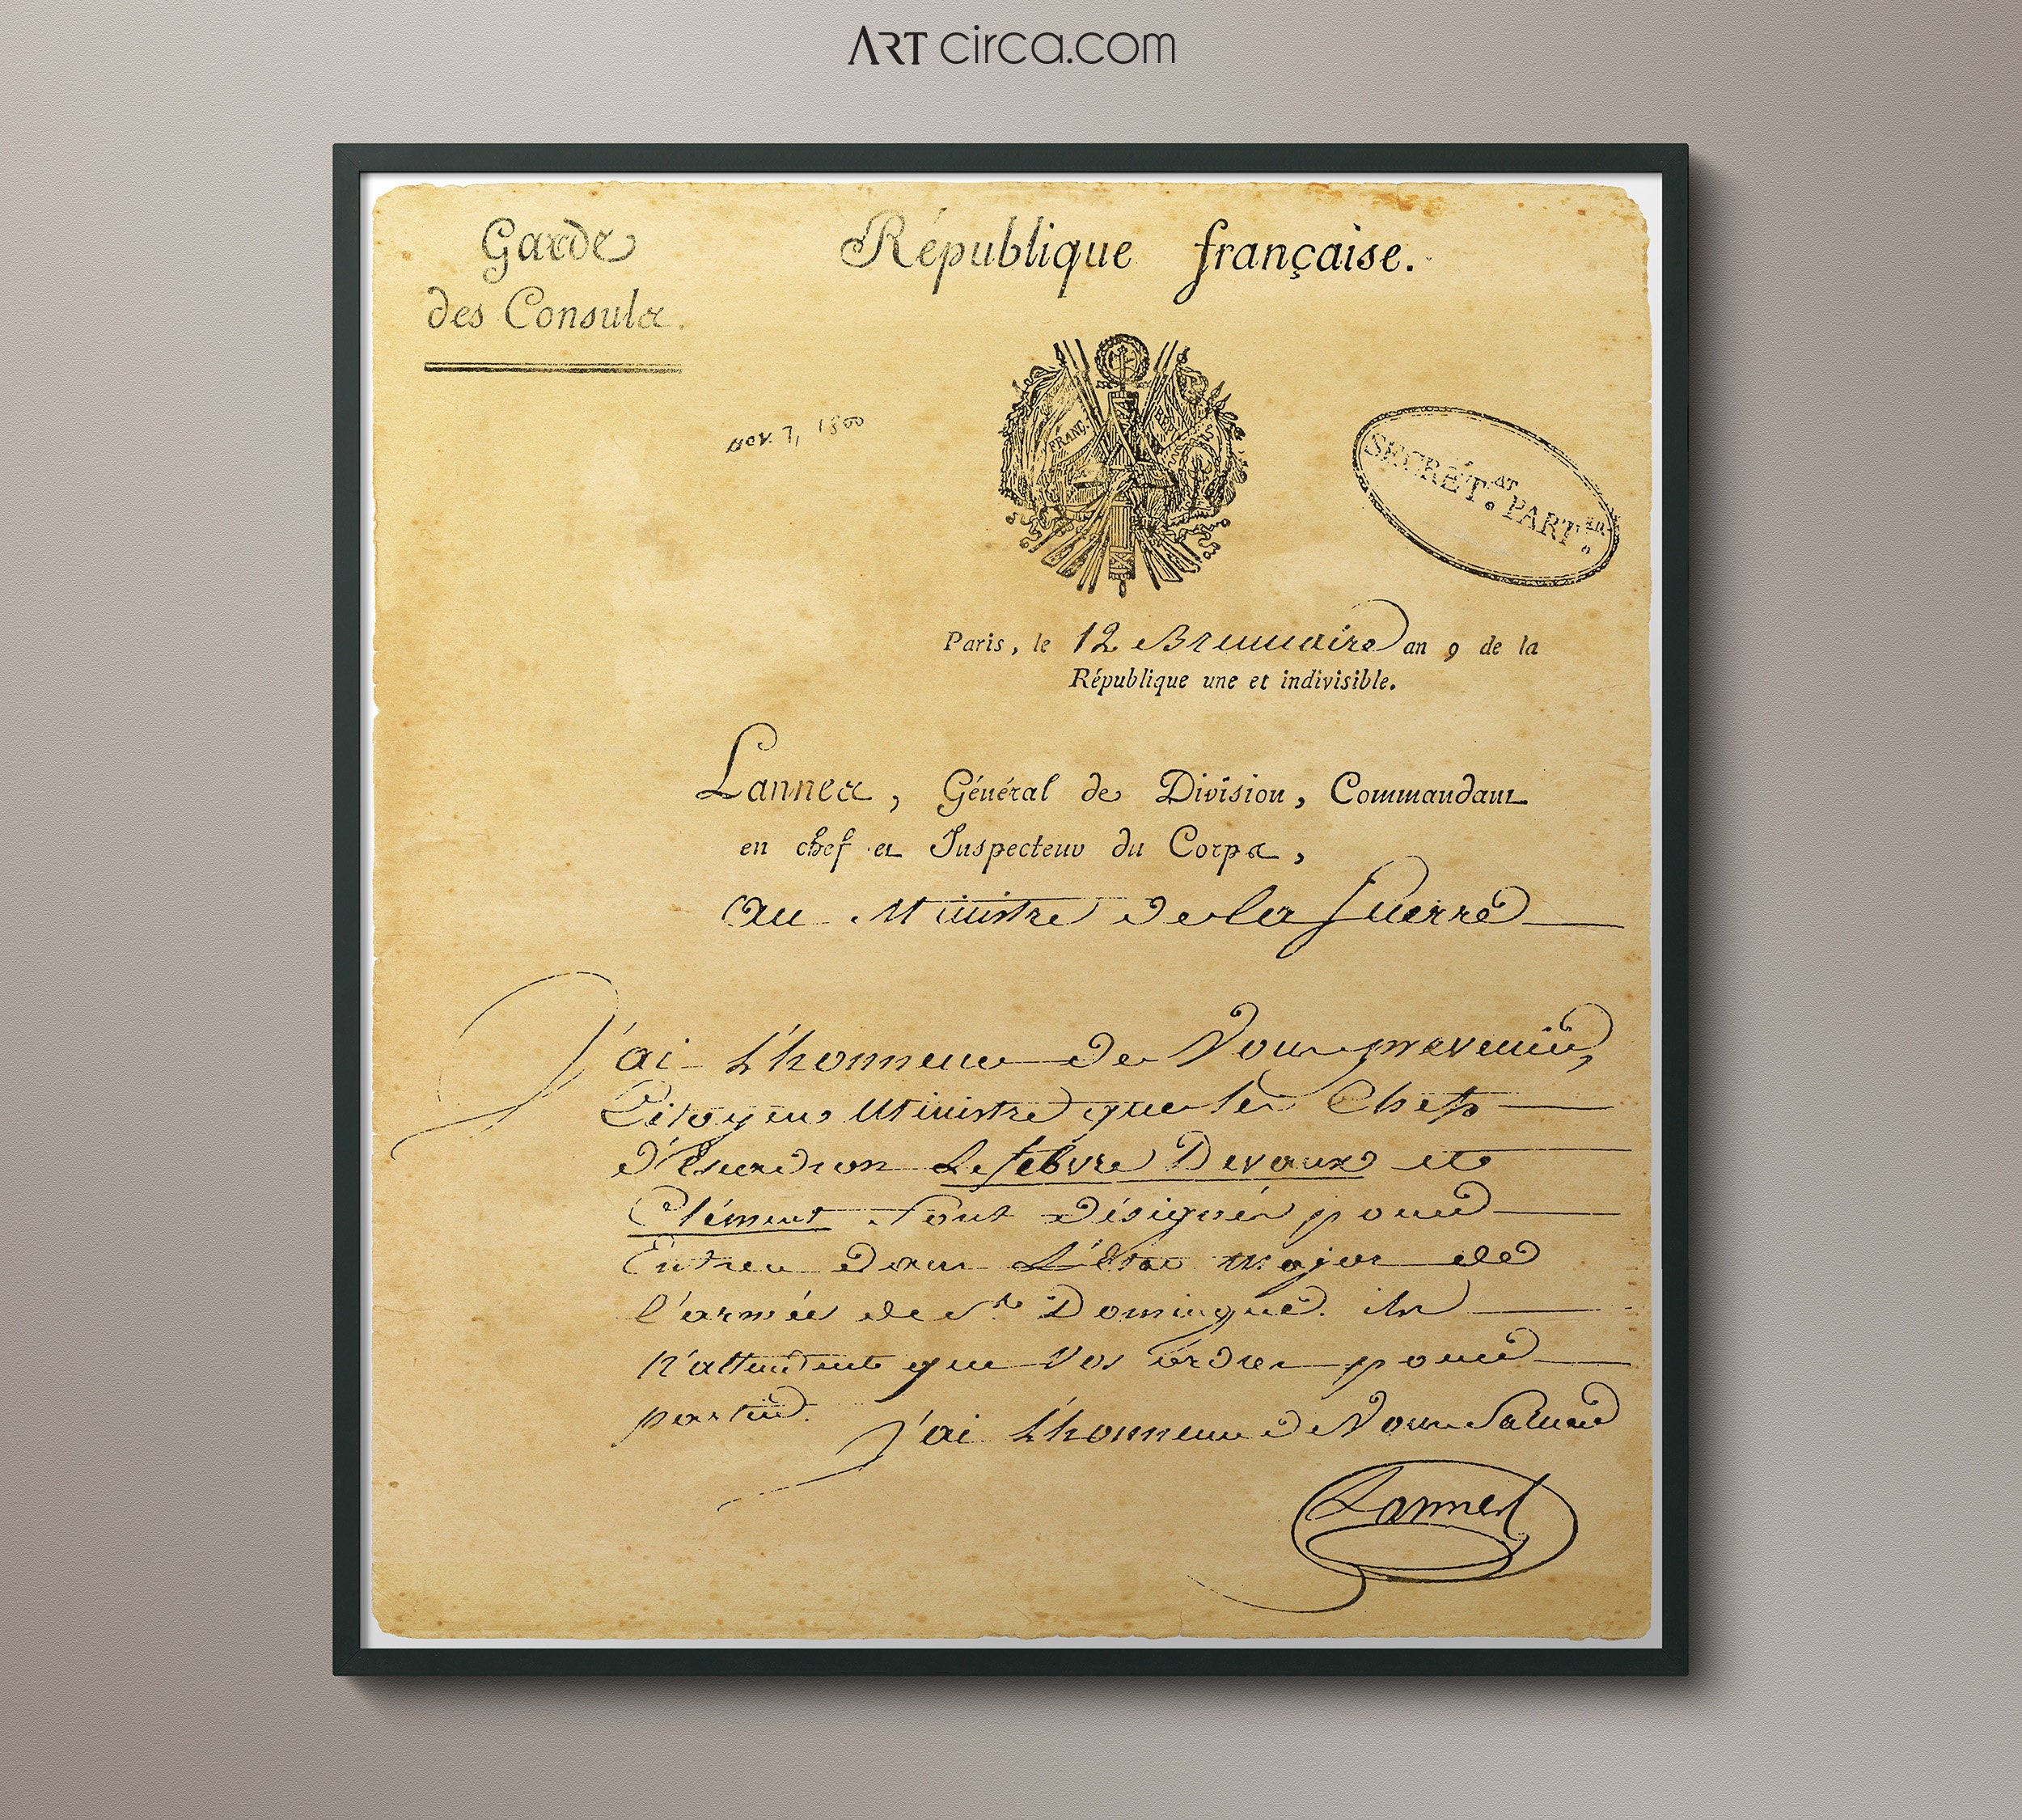 ART circa.com
Garde
des Consuls.
République française.
FRANÇ.
nov. 7, 1800
SECRÉT.AT PART.ER
Paris, le 12 Brumaire an 9 de la
République une et indivisible.
Lannes, Général de Division, Commandant
en chef et Inspecteur du Corps,
au Ministre de la Guerre
J'ai L'honneur de Vous prevenir,
Citoyen Ministre que les Chefs
d'Escadron Lefebvre Devaux et
Clément Sont désignés pour
Entrer dans L'Etat major de
l'armée de St. Domingue. ils
n'attendent que Vos ordres pour
partir.
J'ai L'honneur de Vous Saluer
Lannes